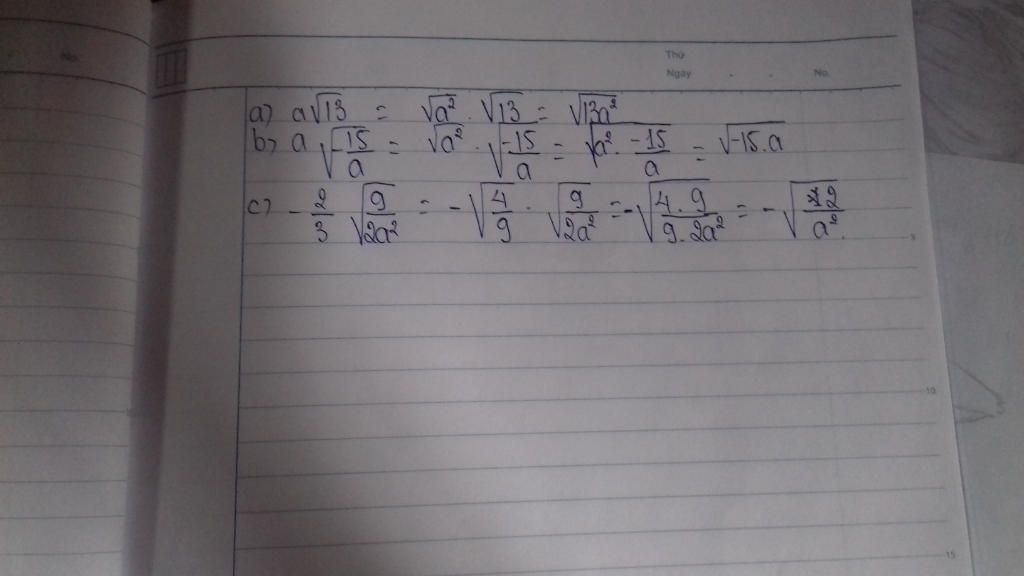 No.
Thứ
Ngày . . No.
a) a√13 = √a² . √13 = √13a²
b) a √(-15/a) = √a² . √(-15/a) = √(a² . -15/a) = √-15.a
c) - 2/3 √(9/2a²) = - √(4/9) . √(9/2a²) = - √(4.9/9.2a²) = - √(2/a²).
5
10
15